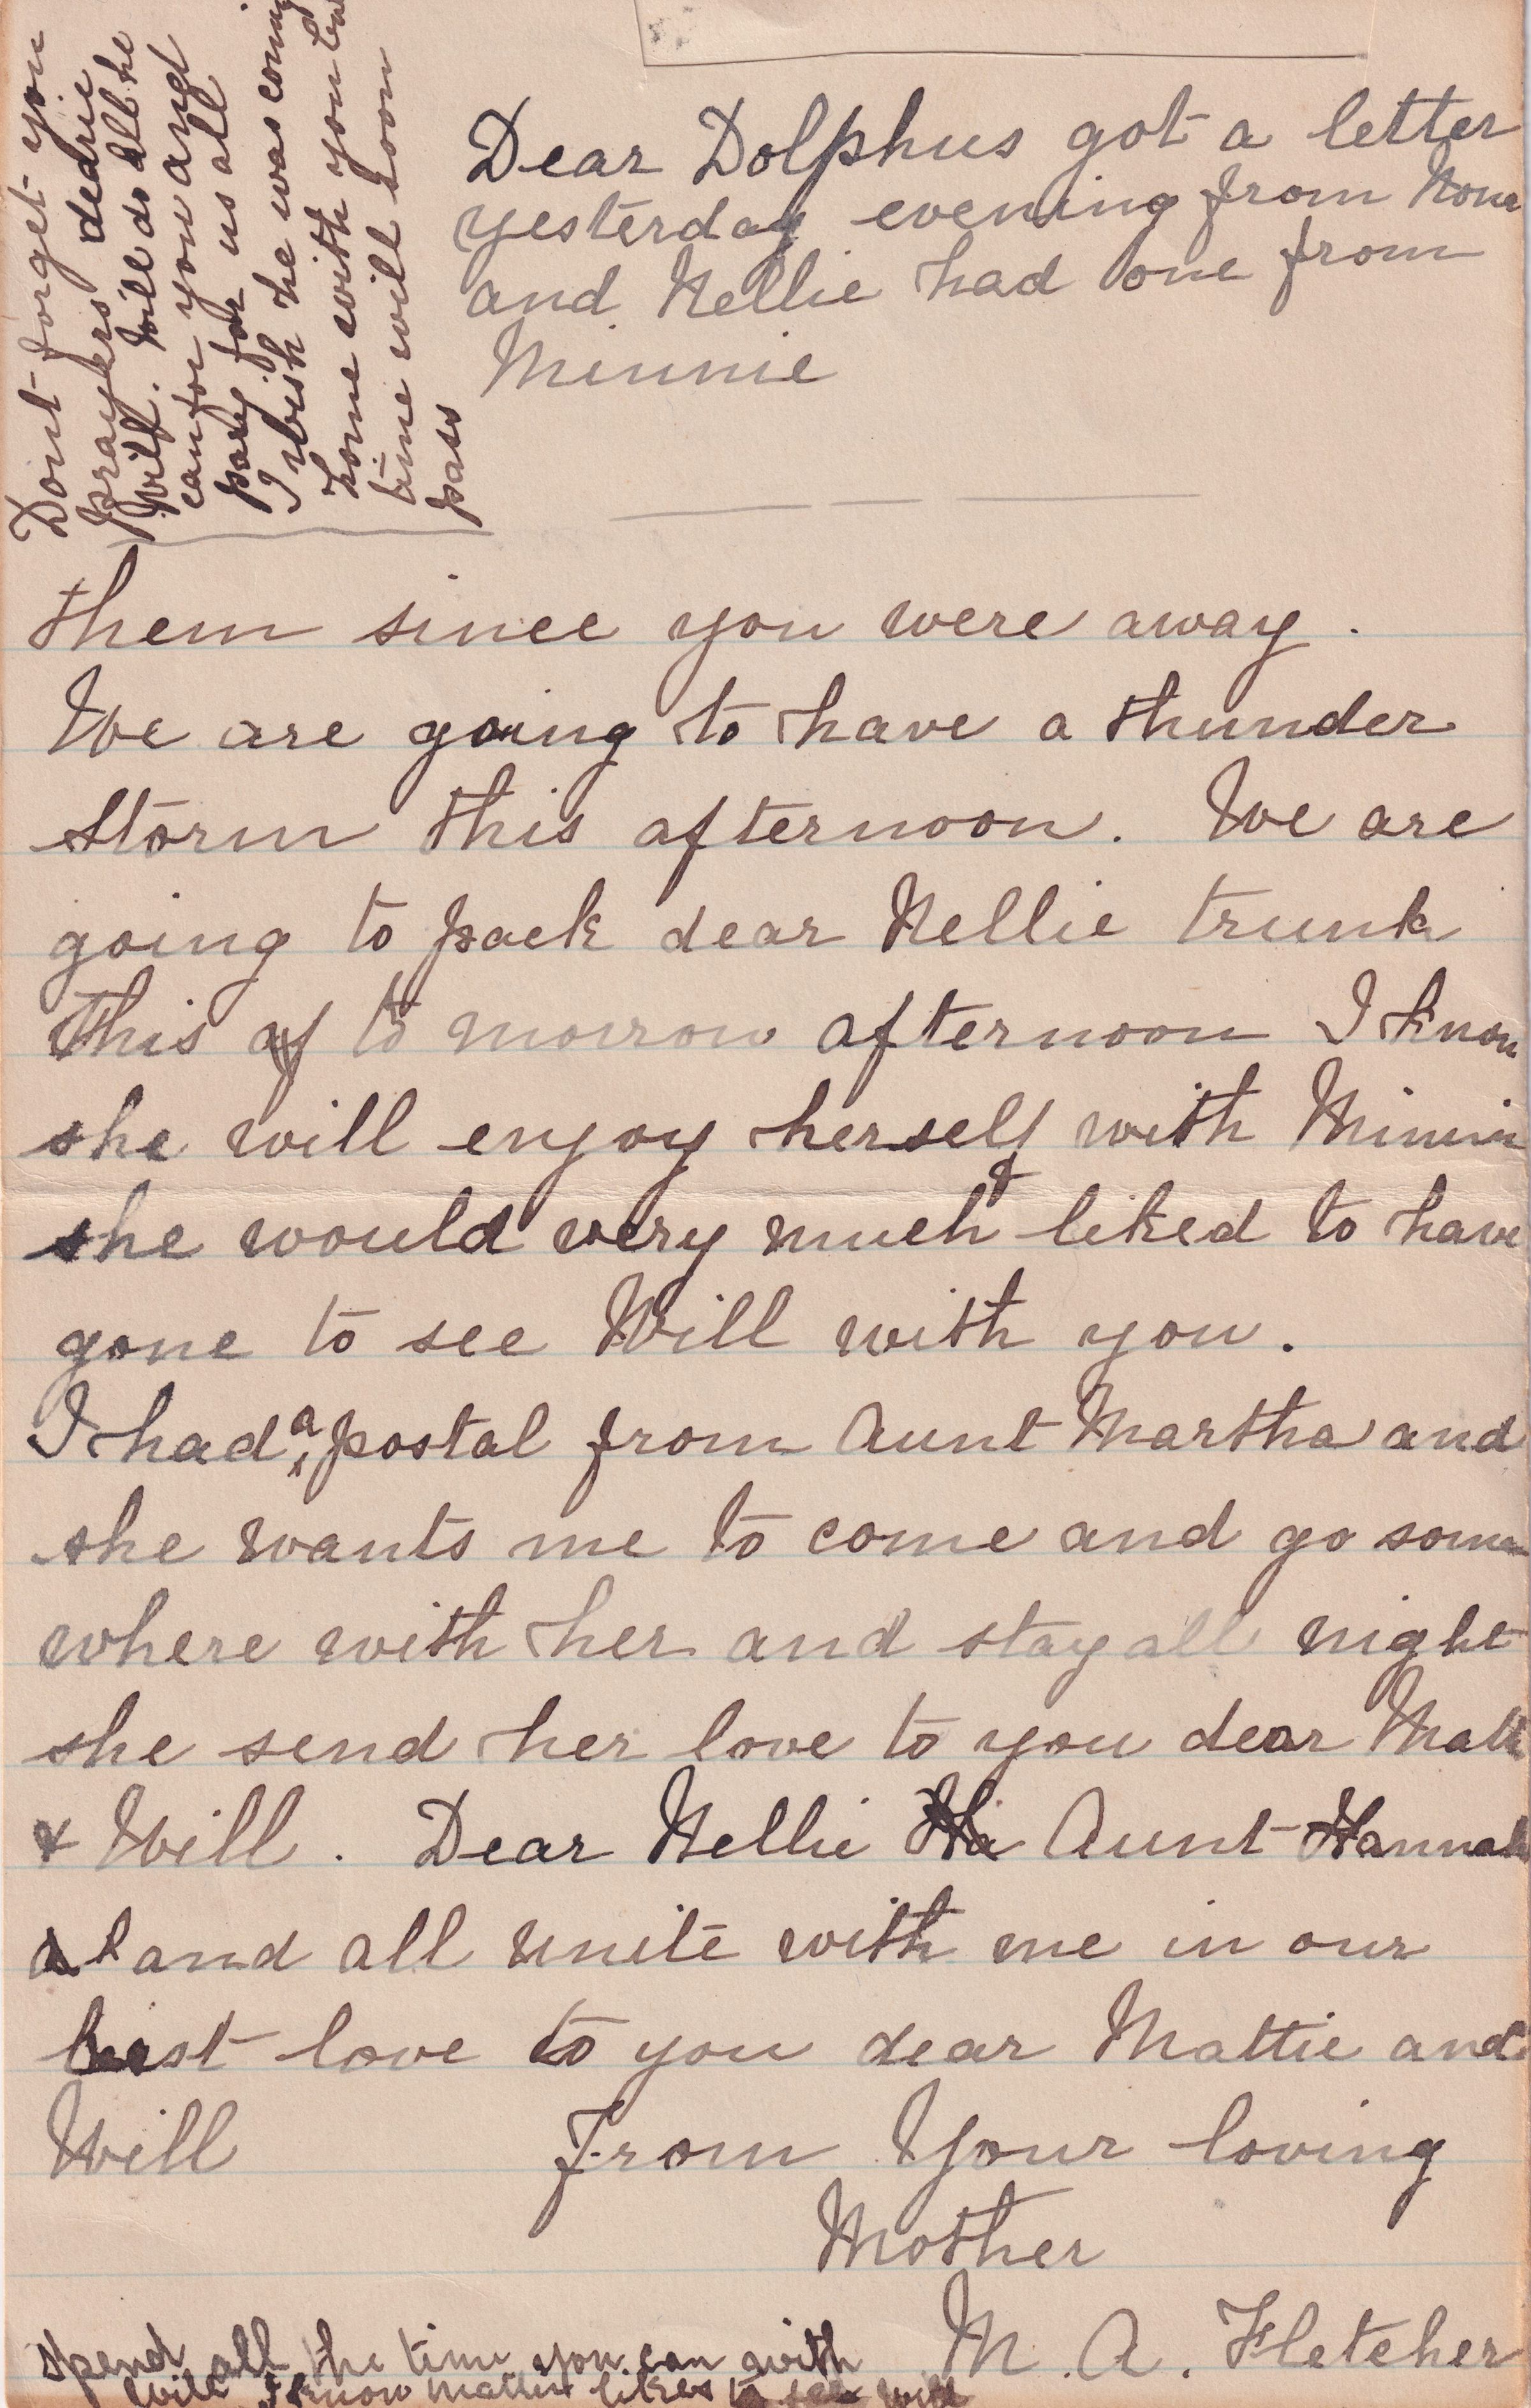 Dont forget you
prayers dearie
Will. Will do all he
can for you and
pary for us all
I wish he was coming
home with you
time will soon
pass
Dear Dolphus got a letter
yesterday evening from
and Nellie had one from
Minnie
them since you were away.
We are going to have a thunder
storm this afternoon. We are
going to pack dear Nellie trunk
this af to morrow afternoon I know
she will enjoy herself with Minnie
she would very much & liked to have
gone to see Will with you.
I had a postal from Aunt Martha and
she wants me to come and go some
where with her and stay all night
she send her love to you dear Matt
& Will. Dear Nellie Ha Aunt Hannah
and all unite with me in our
best love to you dear Mattie and
Will From Your loving
Mother
M. A. Fletcher
Spend all the time you can with
Will I know Mattie likes to see Will